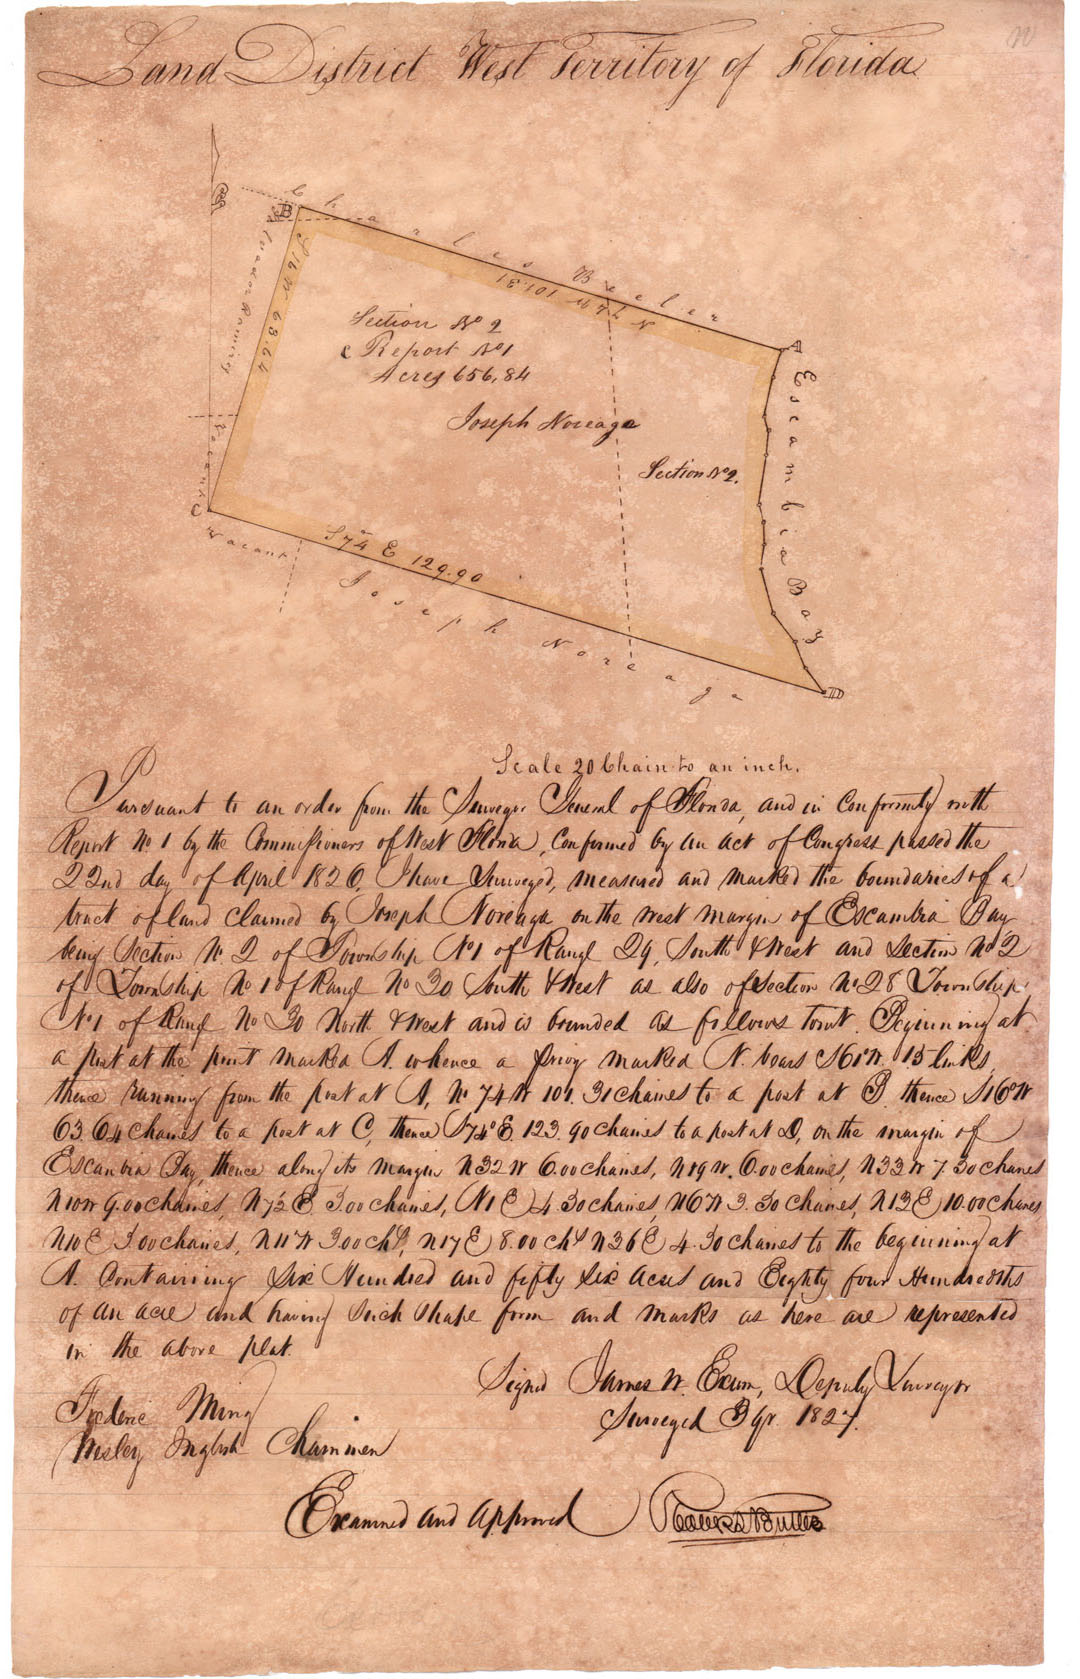 Land District West Territory of Florida
B
Charles Beeler
N 74 W 101.31
S 16 W 63.64
Salvador Ramirez
Section No 2
Report No 1
Acres 656,84
Joseph Noreaga
Section No 2.
A
Escambia Bay
Vacant
C
Vacant
S 74 E 129.90
Joseph Noreaga
D
Scale 20 Chain to an inch.
Pursuant to an order from the Surveyor General of Florida, and in Conformity with
Report No 1 by the Commissioners of West Florida, Confirmed by an Act of Congress passed the
22nd day of April 1826, I have Surveyed, measured and marked the boundaries of a
tract of land claimed by Joseph Noreaga on the west margin of Escambia Bay,
being Section No 2 of Township No 1 of Range 29, South & West and Section No 2
of Township No 1 of Range No 30 South & West as also of Section No 28 Township
No 1 of Range No 30 North & West and is bounded as follows towit. Beginning at
a post at the point marked A. whence a marked N. bears S 61 W. 15 links,
thence running from the post at A, No 74 W 101.31 chaines to a post at B. thence S 16° W
63.64 chaines to a post at C, thence S 74° E. 123.90 chaines to a post at D, on the margin of
Escambia Bay, thence along its margin N 32 W 6.00 chaines, N 19 W. 6.00 chaines, N 33 W 7.30 chaines
N 10 W 9.00 chaines, N 72 E 3.00 chaines, N 1 E 4.30 chaines, N 6 W 3.30 chaines, N 13 E 10.00 chaines,
N 10 E 3.00 chaines, N 11 W 3.00 chs, N 17 E 8.00 chs N 36 E 4.30 chaines to the beginning at
A. Containing Six Hundred and fifty Six Acres and Eighty four Hundredths
of an acre and having such shape form and marks as here are represented
in the above plat.
Signed James W. Exum, Deputy Surveyor
Surveyed 3 Qr. 1827.
Frederic Ming
Wesley English Chainmen
Examined and Approved Robert Butler